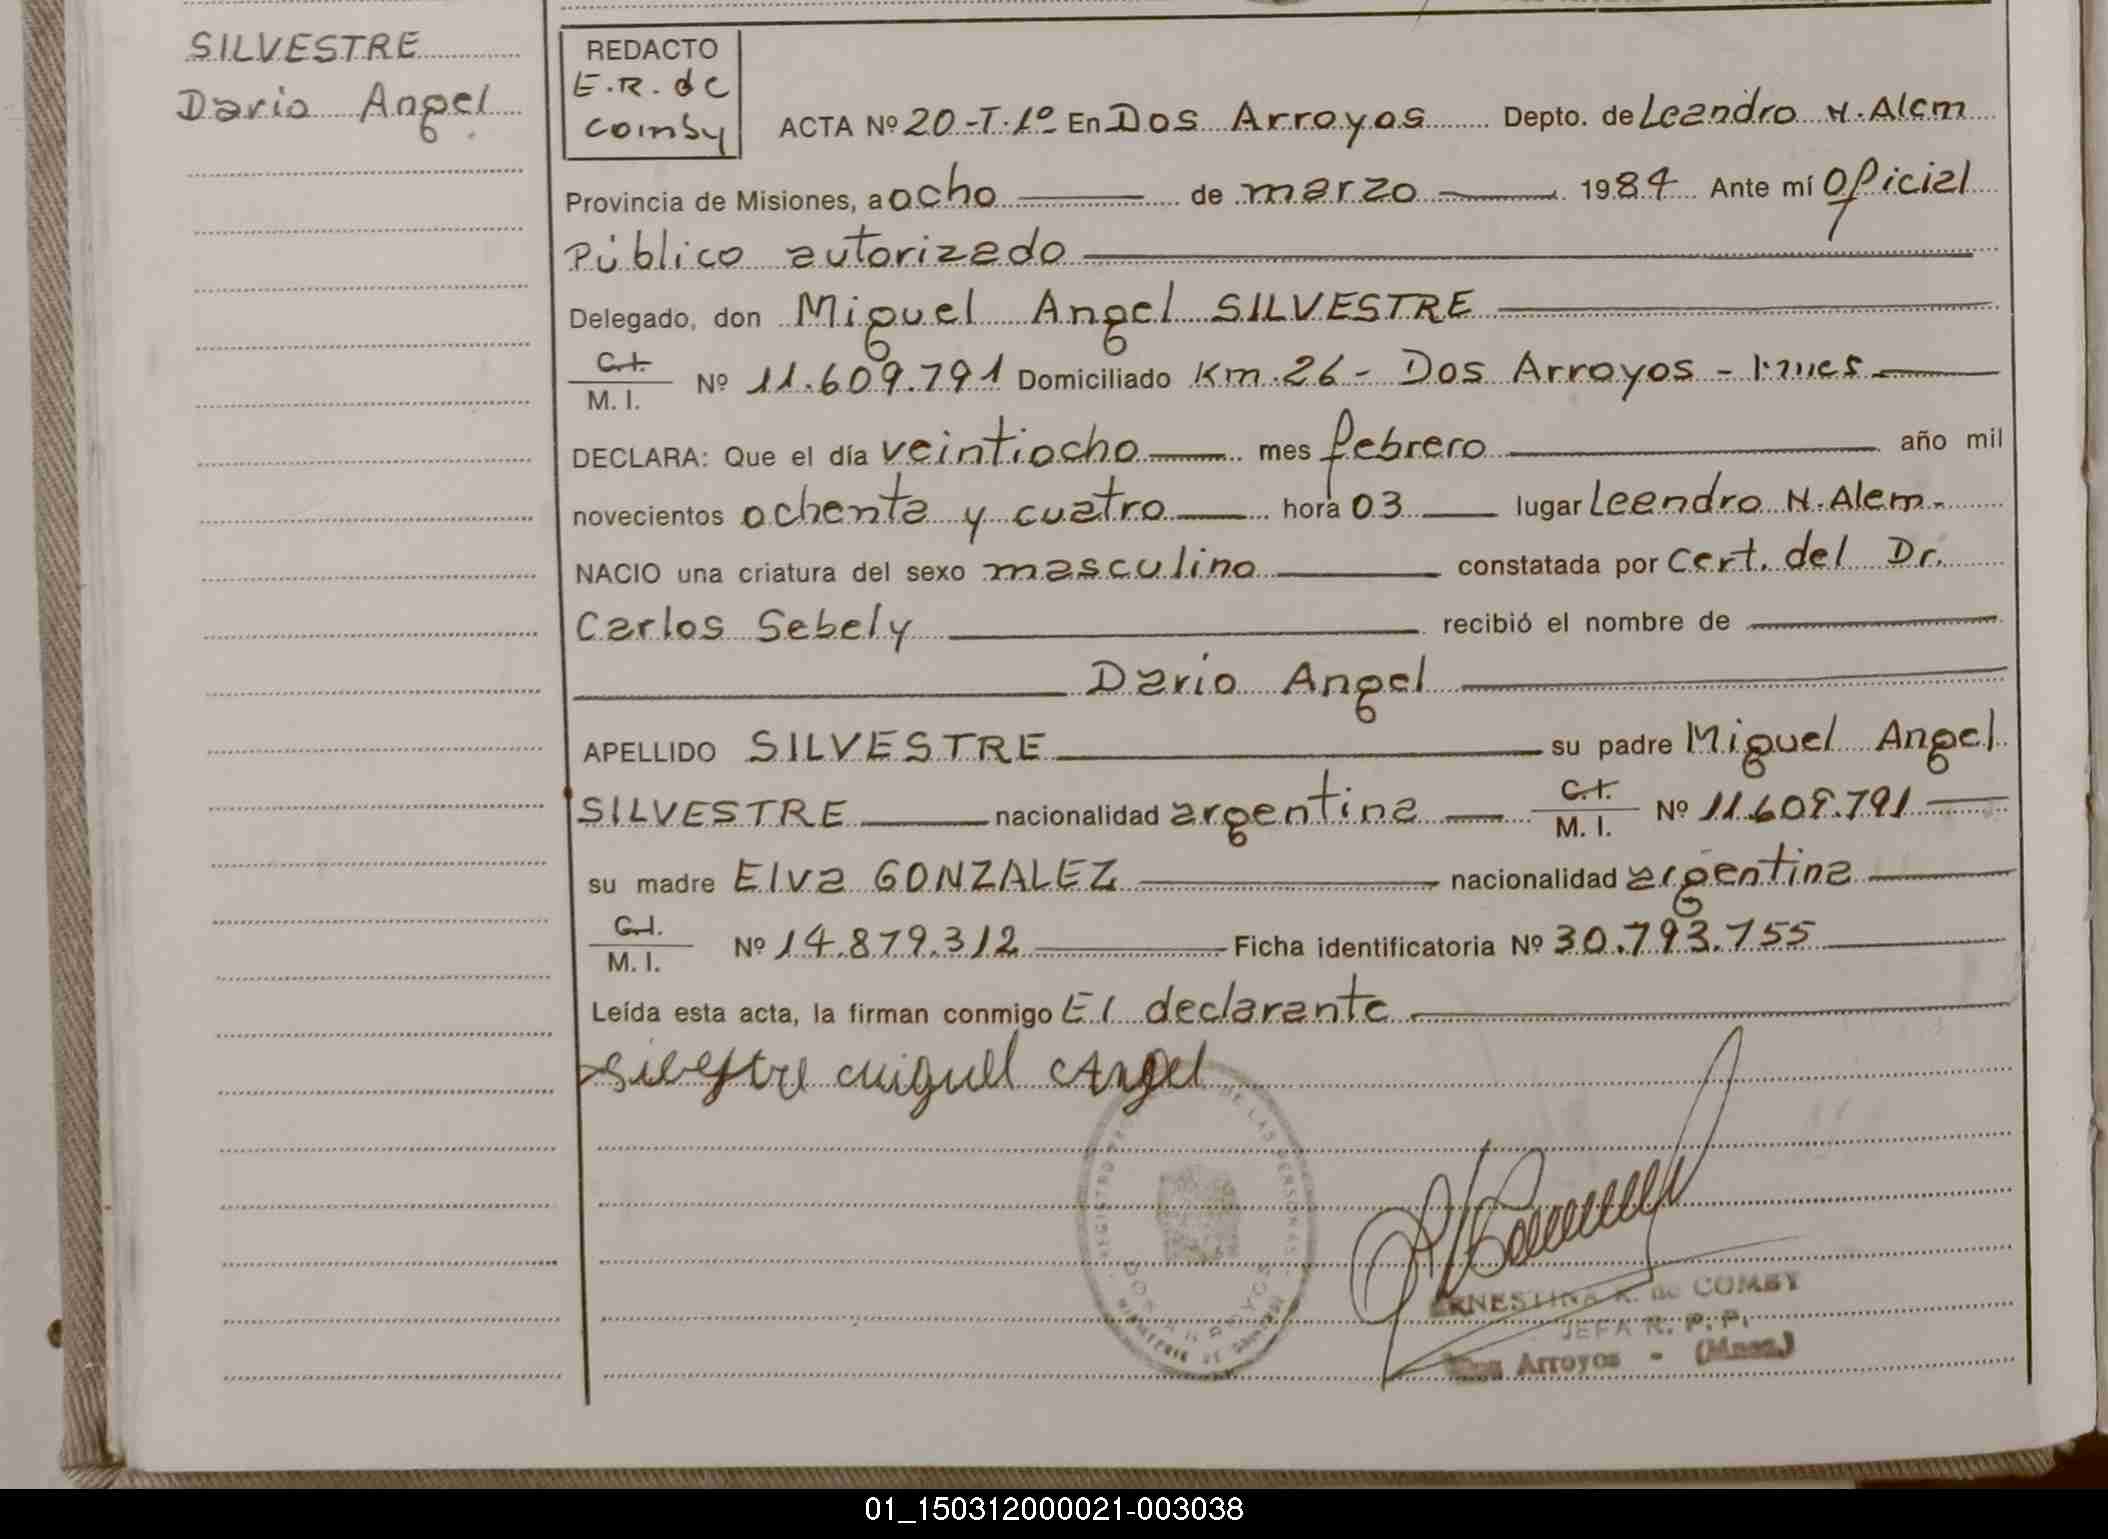 SILVESTRE
Dario Angel
REDACTO
E.R. de
Comby
ACTA Nº 20-T.1º En Dos Arroyos Depto. de Leandro N. Alem
Provincia de Misiones, a ocho de marzo 1984 Ante mí Oficial
Público autorizado
Delegado, don Miguel Angel SILVESTRE
C.I.
M. I. Nº 11.609.791 Domiciliado Km. 26 - Dos Arroyos -
DECLARA: Que el día veintiocho mes febrero año mil
novecientos ochenta y cuatro hora 03 lugar Leandro N. Alem.
NACIO una criatura del sexo masculino constatada por Cert. del Dr.
Carlos Sebely recibió el nombre de
Dario Angel
APELLIDO SILVESTRE su padre Miguel Angel
SILVESTRE nacionalidad argentina C.I. M. I. Nº 11.609.791
su madre Elva GONZALEZ nacionalidad argentina
C.I.
M. I. Nº 14.879.312 Ficha identificatoria Nº 30.793.755
Leída esta acta, la firman conmigo El declarante
Silvestre Miguel Angel
REGISTRO DE LAS PERSONAS
DOS ARROYOS
MINISTERIO DE GOBIERNO
ERNESTINA R. de COMBY
JEFA R. P. P.
Dos Arroyos - (Mnes.)
01_150312000021-003038